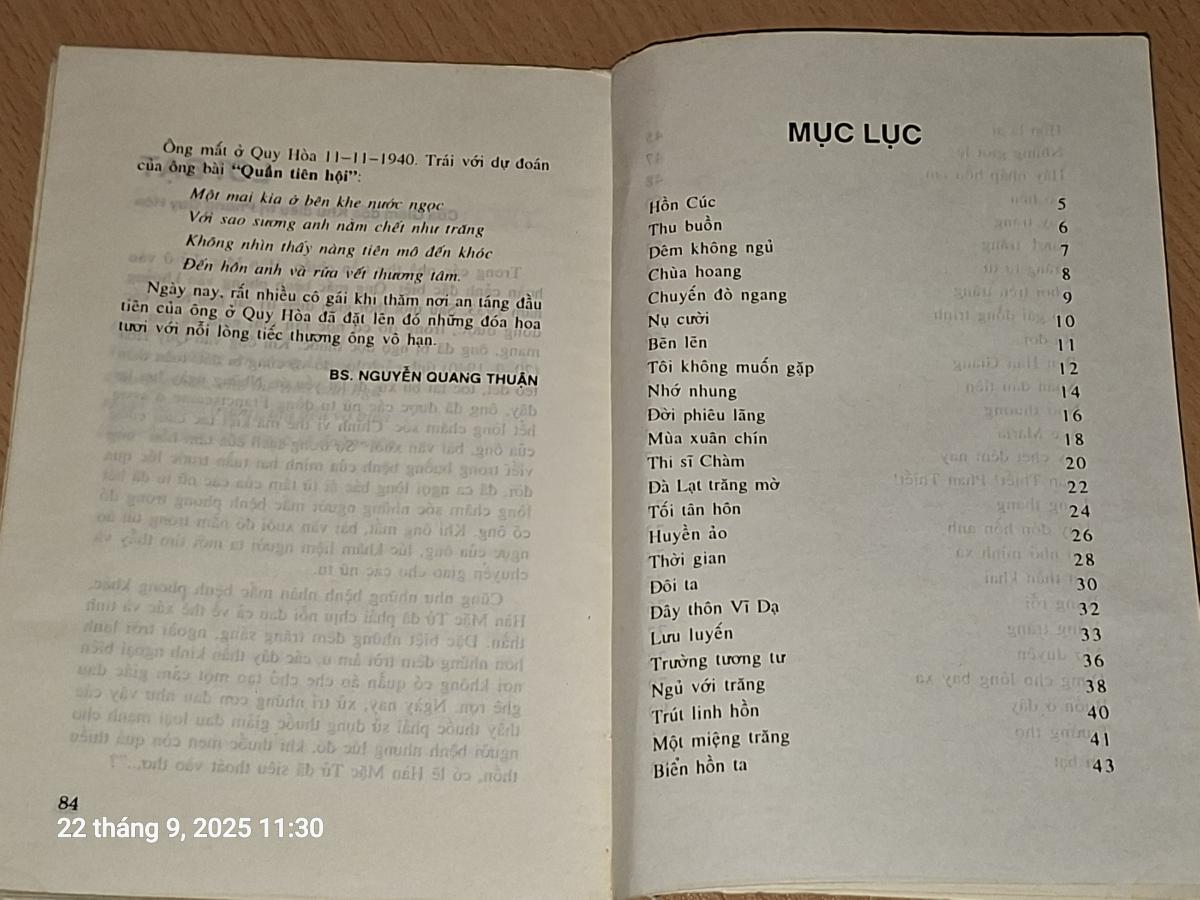 Ông mất ở Quy Hòa 11–11–1940. Trái với dự đoán
của ông bài “Quần tiên hội”:
Một mai kia ở bên khe nước ngọc
Với sao sương anh nằm chết như trăng
Không nhìn thấy nàng tiên mô đến khóc
Đến hôn anh và rửa vết thương tâm.
Ngày nay, rất nhiều cô gái khi thăm nơi an táng đầu
tiên của ông ở Quy Hòa đã đặt lên đó những đóa hoa
tươi với nỗi lòng tiếc thương ông vô hạn.
BS. NGUYỄN QUANG THUẬN
84
22 tháng 9, 2025 11:30
MỤC LỤC
Hồn Cúc 5
Thu buồn 6
Đêm không ngủ 7
Chùa hoang 8
Chuyến đò ngang 9
Nụ cười 10
Bẽn lẽn 11
Tôi không muốn gặp 12
Nhớ nhung 14
Đời phiêu lãng 16
Mùa xuân chín 18
Thi sĩ Chàm 20
Đà Lạt trăng mờ 22
Tối tân hôn 24
Huyền ảo 26
Thời gian 28
Đôi ta 30
Đây thôn Vĩ Dạ 32
Lưu luyến 33
Trường tương tư 36
Ngủ với trăng 38
Trút linh hồn 40
Một miệng trăng 41
Biển hồn ta 43